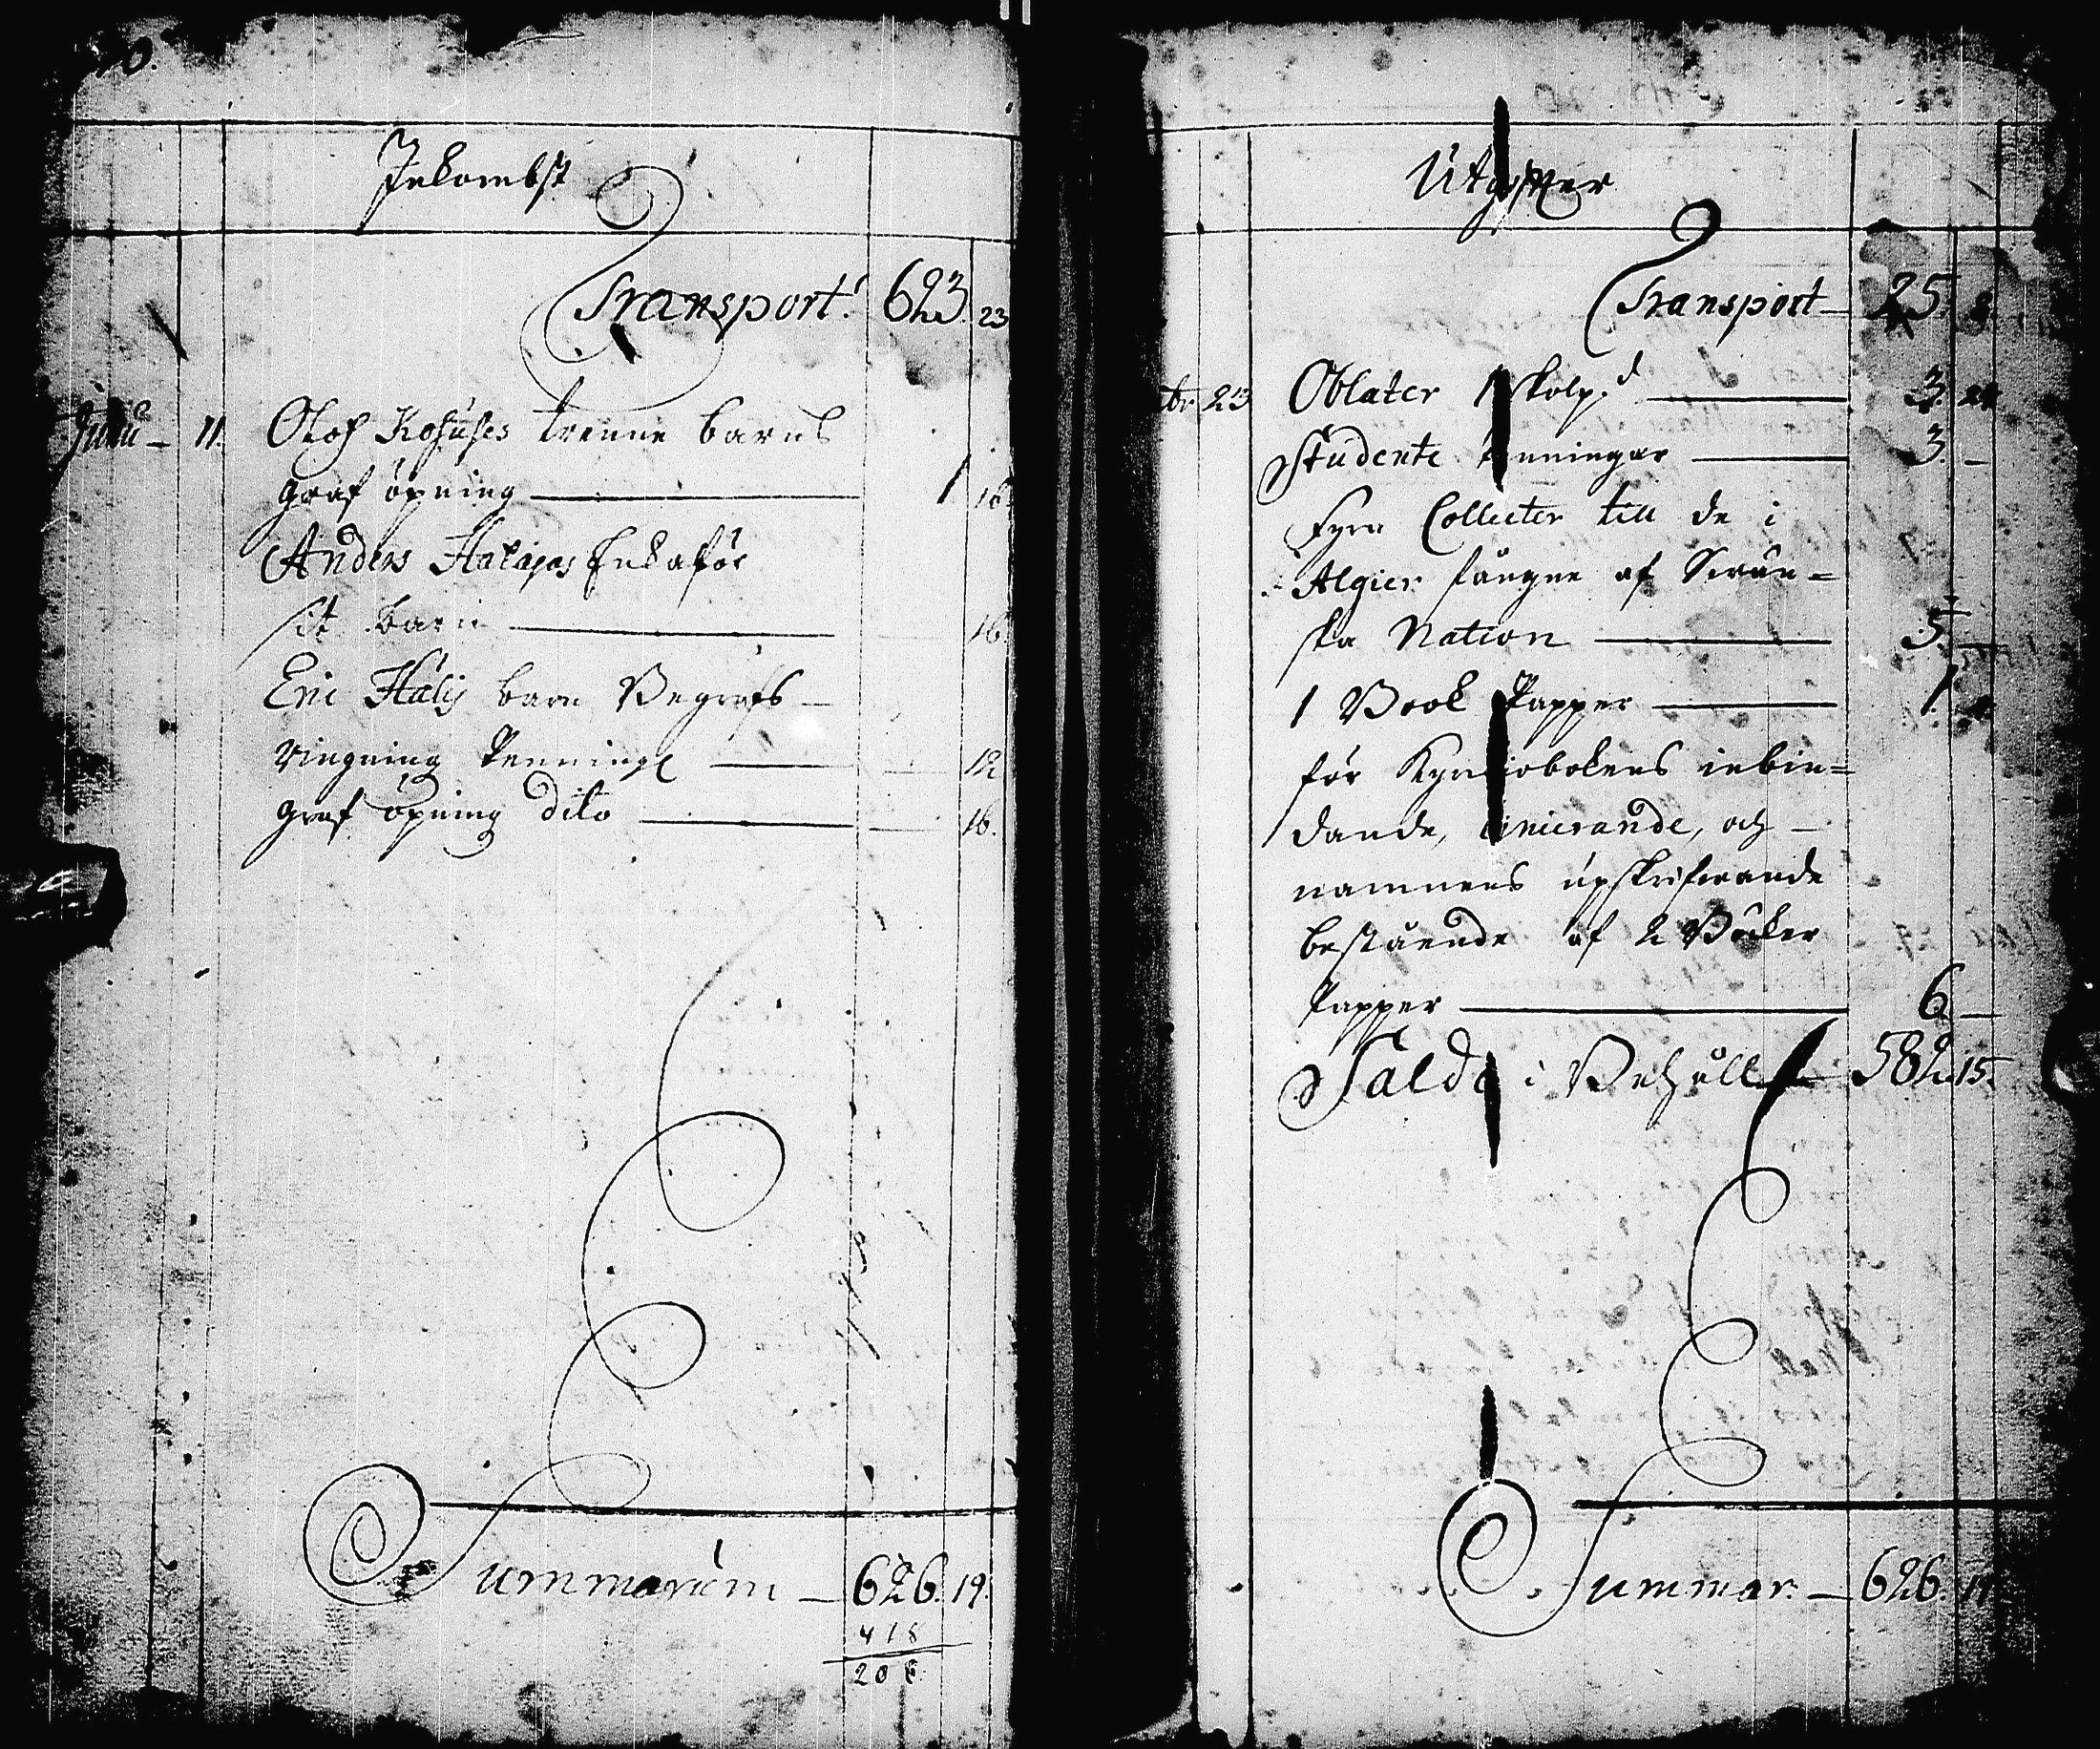 Inkombst
Transport. 623. 23
Junii – 11. Olof Kosuses trenne barns
graf öpning 1 16
Anders Halajas Enka för
sit barn 16.
Eric Halij barn Begrafs
Ringning Penning 12
graf öpning dito 16.
Summarum 626. 19.
418
208
Utgifter
Transport 25. 8.
br 23 Oblater 1 skolp.d 3.
Studente penningar 3. –
Fyra Collecter till de i
Algier fångne af Swän=
ska Nation 5. –
1 Book Papper 1
för Kyrkiobokens inbin=
dande, linierande, och
namnens upskrifwande
bestående af 2 Böcker
Papper 6 –
Saldo i Behåll 582. 15.
Summar. 626. 19